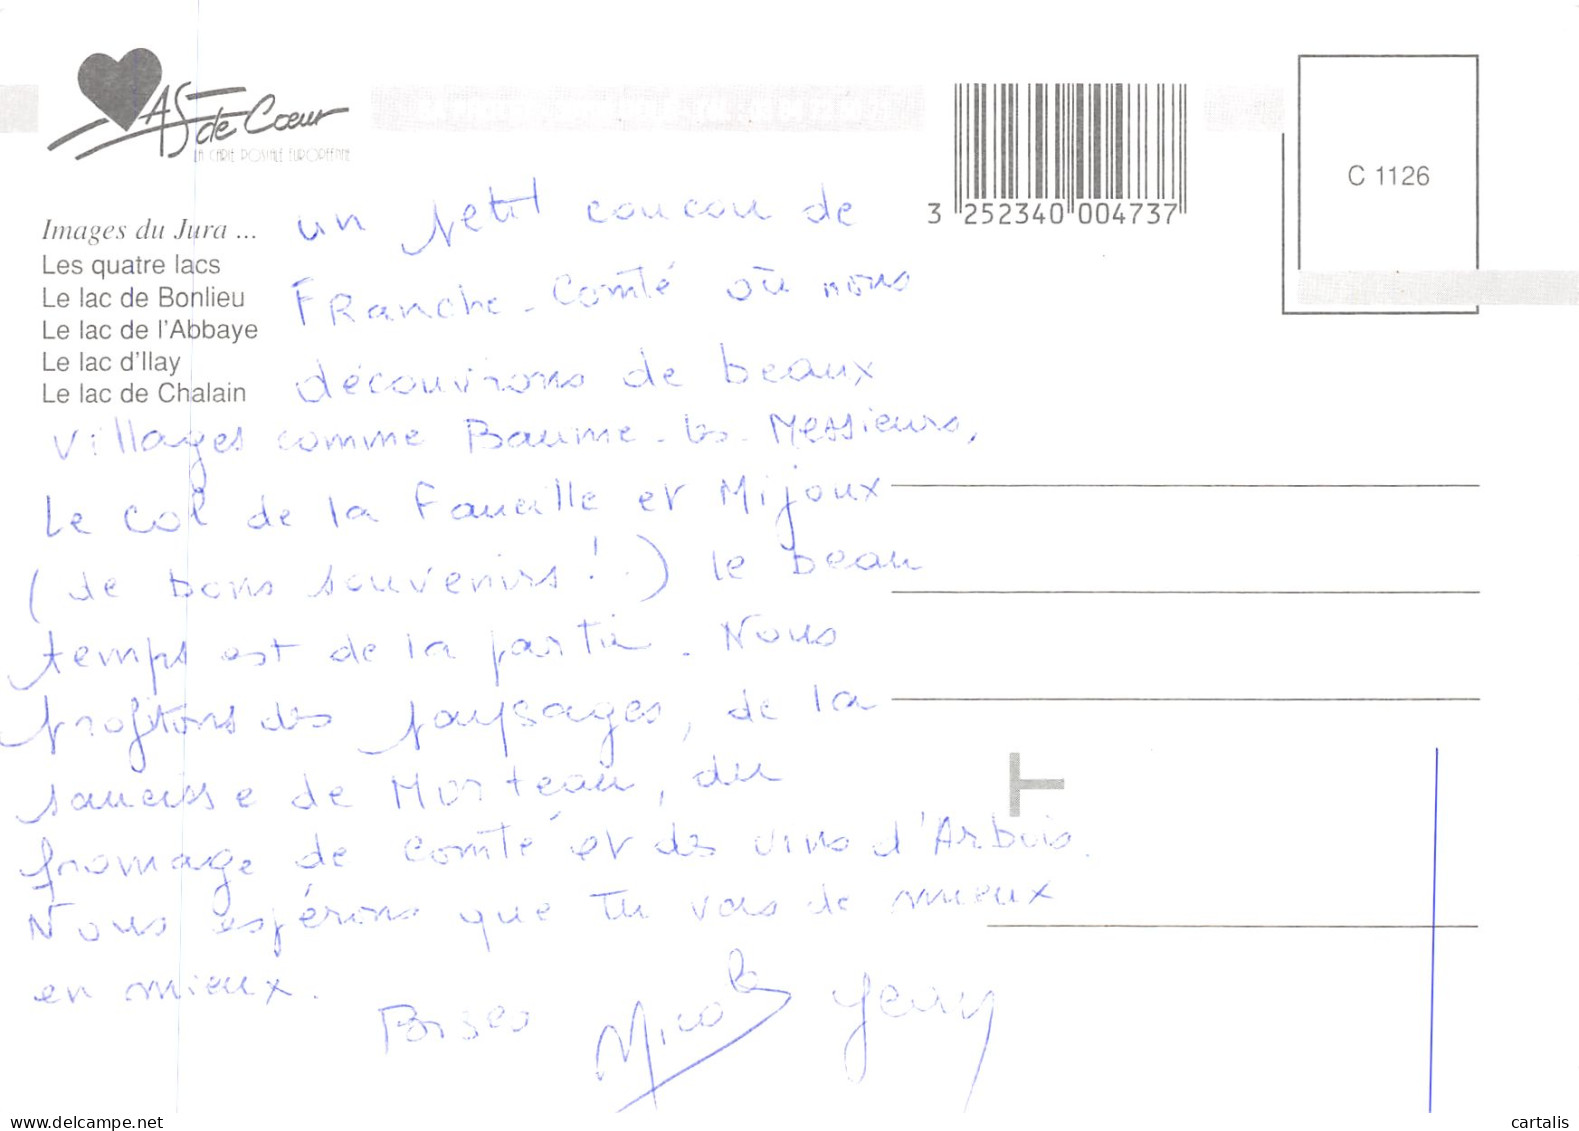 As de Cœur
LA CARTE POSTALE EUROPÉENNE
C 1126
3 252340 004737
Images du Jura ...
Les quatre lacs
Le lac de Bonlieu
Le lac de l'Abbaye
Le lac d'Ilay
Le lac de Chalain
un petit coucou de
Franche-Comté où nous
découvrons de beaux
villages comme Baume-les-Messieurs,
Le col de la Faucille et Mijoux
(de bons souvenirs !..) le beau
temps est de la partie. Nous
profitons des paysages, de la
saucisse de Morteau, du
fromage de Comté et des vins d'Arbois.
Nous espérons que tu vas de mieux
en mieux.
Bises Nicole Jean
www.delcampe.net
cartalis